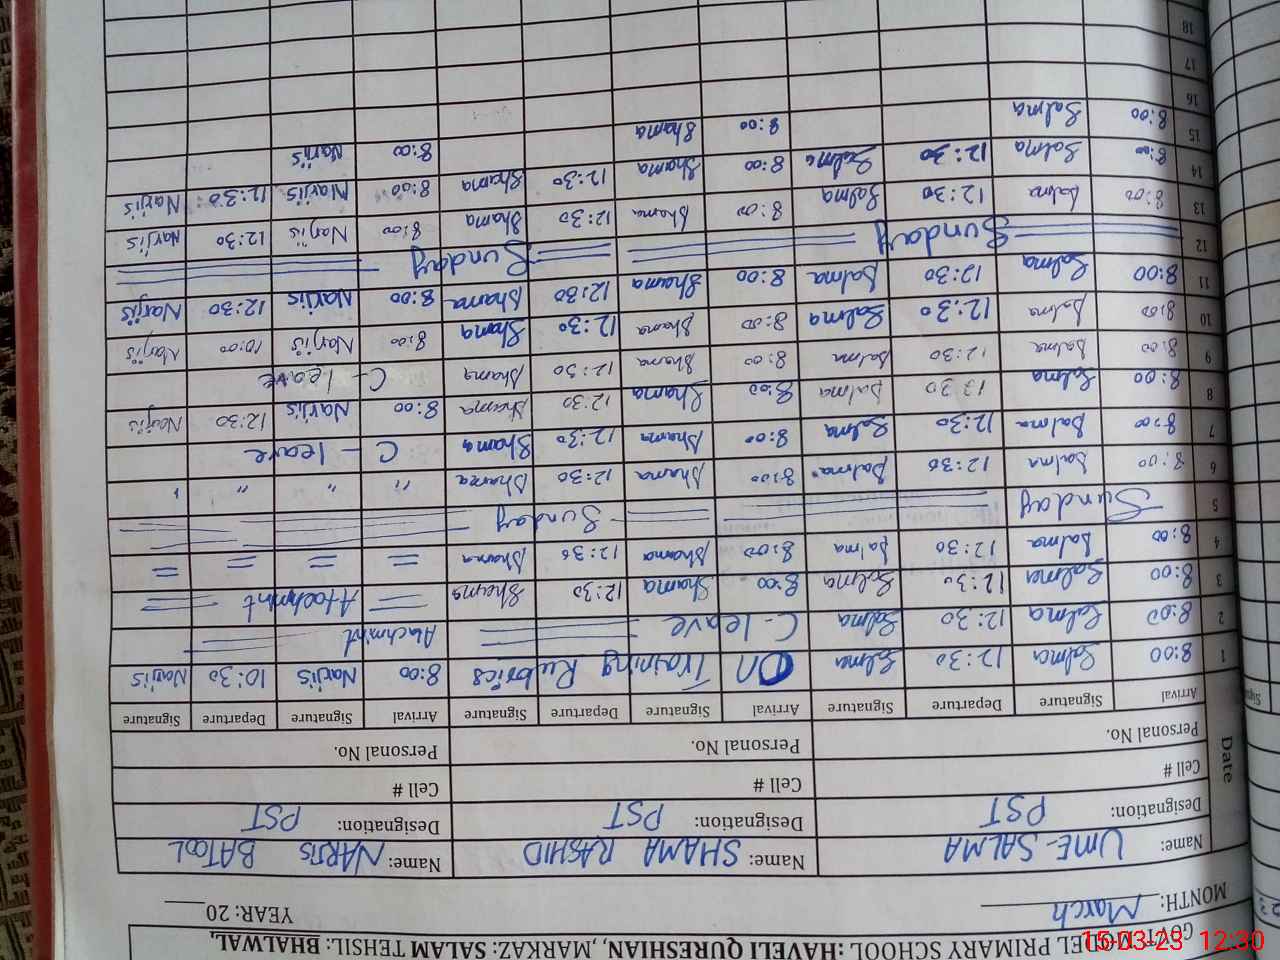 GOVT. MODEL PRIMARY SCHOOL : HAVELI QURESHIAN, MARKAZ: SALAM TEHSIL: BHALWAL,
MONTH: March YEAR: 20
Date Name: UME-SALMA Name: SHAMA RASHID Name: NARJIS BATOOL
Designation: PST Designation: PST Designation: PST
Cell # Cell # Cell #
Personal No. Personal No. Personal No.
Arrival Signature Departure Signature Arrival Signature Departure Signature Arrival Signature Departure Signature
1 8:00 Salma 12:30 Salma On Training Rubrics 8:00 Narjis 10:30 Narjis
2 8:00 Salma 12:30 Salma C-leave Atachmint
3 8:00 Salma 12:30 Salma 8:00 Shama 12:30 Shama Atachmint
4 8:00 Salma 12:30 Salma 8:00 Shama 12:30 Shama = = = =
5 Sunday Sunday
6 8:00 Salma 12:30 Salma 8:00 Shama 12:30 Shama " " " "
7 8:00 Salma 12:30 Salma 8:00 Shama 12:30 Shama C-leave
8 8:00 Salma 12:30 Salma 8:00 Shama 12:30 Shama 8:00 Narjis 12:30 Narjis
9 8:00 Salma 12:30 Salma 8:00 Shama 12:30 Shama C-leave
10 8:00 Salma 12:30 Salma 8:00 Shama 12:30 Shama 8:00 Narjis 10:00 Narjis
11 8:00 Salma 12:30 Salma 8:00 Shama 12:30 Shama 8:00 Narjis 12:30 Narjis
12 Sunday Sunday
13 8:00 Salma 12:30 Salma 8:00 Shama 12:30 Shama 8:00 Narjis 12:30 Narjis
14 8:00 Salma 12:30 Salma 8:00 Shama 12:30 Shama 8:00 Narjis 12:30 Narjis
15 8:00 Salma 8:00 Shama 8:00 Narjis
16
17
18
15-03-23 12:30